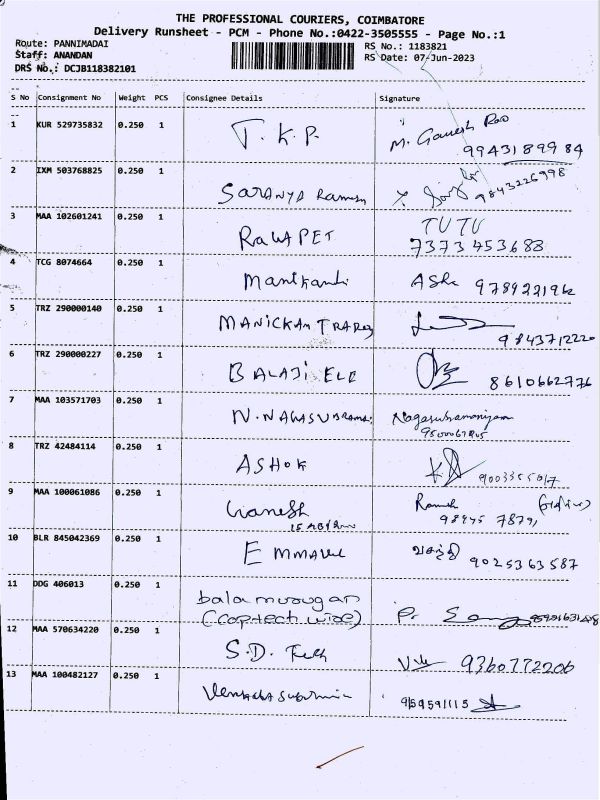 THE PROFESSIONAL COURIERS, COIMBATORE
Delivery Runsheet - PCM - Phone No.:0422-3505555 - Page No.:1
Route: PANNIMADAI RS No.: 1183821
Staff: ANANDAN RS Date: 07-Jun-2023
DRS No.: DCJB118382101
S No Consignment No Weight PCS Consignee Details Signature
1 KUR 529735832 0.250 1 T.K.P. M. Ganesh Rao
99431 899 84
2 IXM 503768825 0.250 1 SARANYA Ramesh 9843226998
3 MAA 102601241 0.250 1 RAWAPET TUTU
7373 453688
4 TCG 8074664 0.250 1 Manikandi
5 TRZ 290000140 0.250 1 MANICKAM
9843712220
6 TRZ 290000227 0.250 1 BALAJI ELE 8610662776
7 MAA 103571703 0.250 1 N. Nagasubramaniyam
8 TRZ 42484114 0.250 1 ASHOK
9 MAA 100061086 0.250 1 Ganesh Ramesh
10 BLR 845042369 0.250 1 வசந்தி 9025363587
11 DDG 406013 0.250 1 bala murugan P.
12 MAA 570634220 0.250 1 S.D. Tech 9360772206
13 MAA 100482127 0.250 1 9159591115